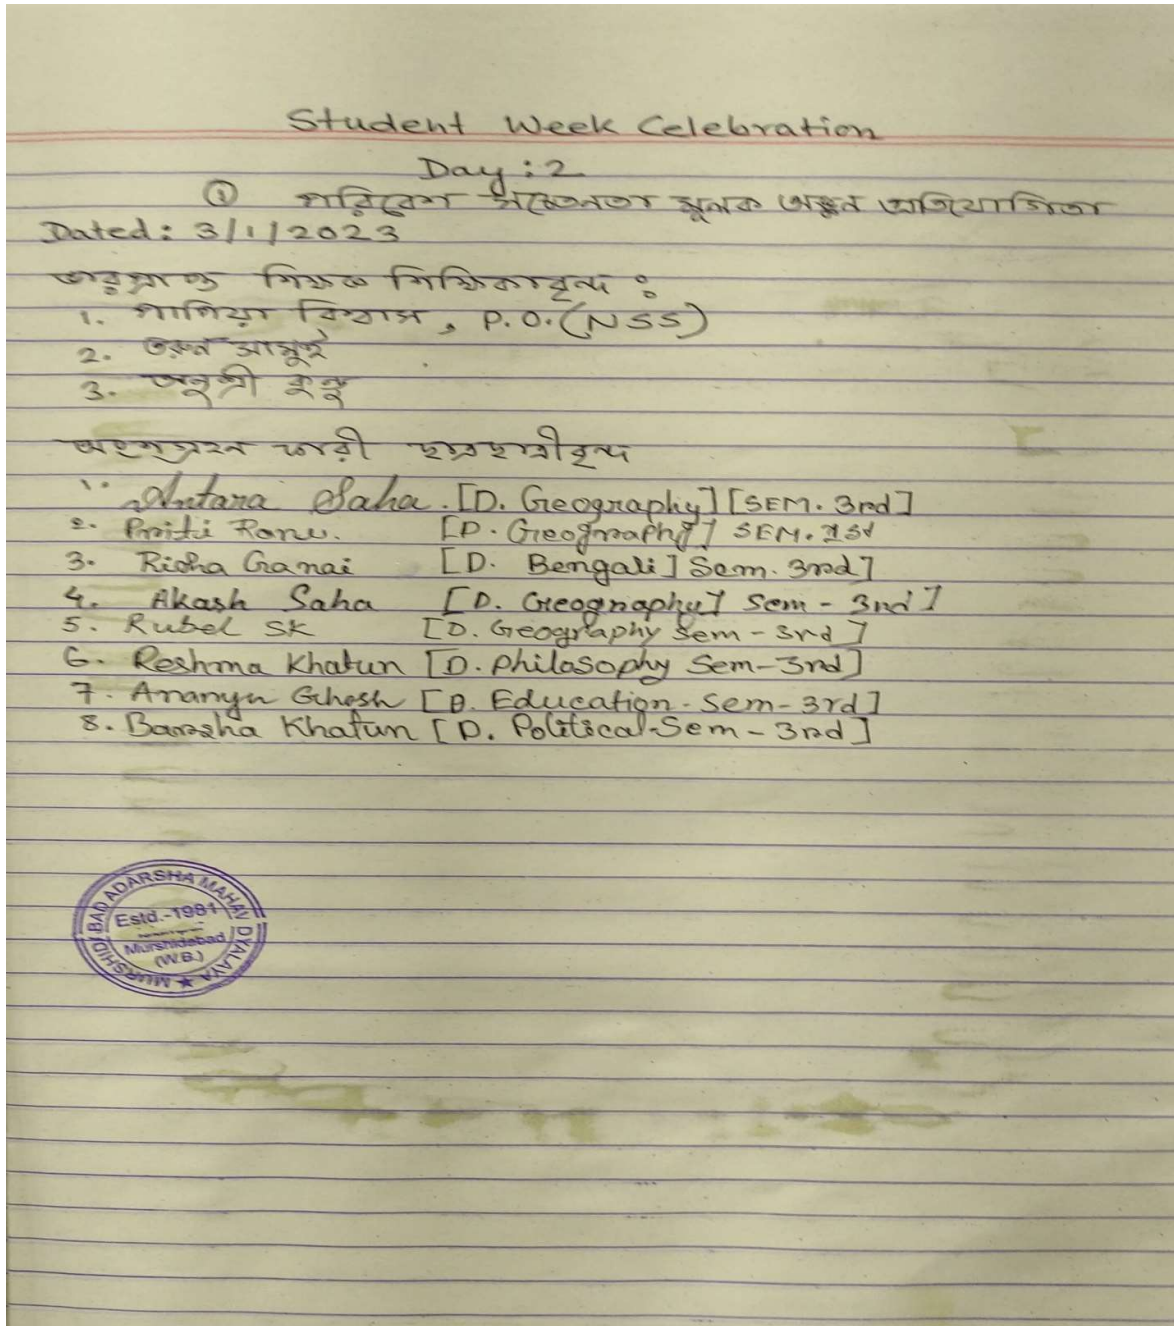 Student Week Celebration
Day : 2
① পরিবেশ সচেতনতা মূলক অঙ্কন প্রতিযোগিতা
Dated: 3/1/2023
ভারপ্রাপ্ত শিক্ষক শিক্ষিকাবৃন্দ :
1. পাপিয়া বিশ্বাস, P.O. (NSS)
2. তরুন সামুই
3. অনুশ্রী কুন্ডু
অংশগ্রহন কারী ছাত্রছাত্রীবৃন্দ
1. Antara Saha. [D. Geography] [SEM. 3rd]
2. Priti [D. Geography] SEM. 1st
3. Risha Ganai [D. Bengali] Sem. 3rd]
4. Akash Saha [D. Geography] Sem - 3rd]
5. Rubel SK [D. Geography Sem - 3rd]
6. Reshma Khatun [D. Philosophy Sem-3rd]
7. Ananya Ghosh [D. Education - Sem - 3rd]
8. Barsha Khatun [D. Political Sem - 3rd]
MURSHIDABAD ADARSHA MAHAVIDYALAYA
Estd.-1981
Murshidabad
(W.B.)